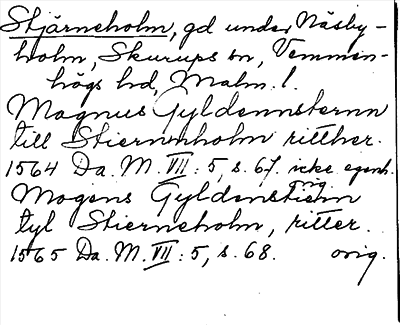 Stjärneholm, gd under Näsby-
holm, Skurups sn, Vemmen-
högs hd, Malm. l.
Magnus Gyldennsternn
till Stiernnholm ritther.
1564 Da. M. VII: 5, s. 67. icke egenh.
orig.
Mogens Gyldenstiern
tyl Stierneholm, ritter.
1565 Da. M. VII: 5, s. 68. orig.